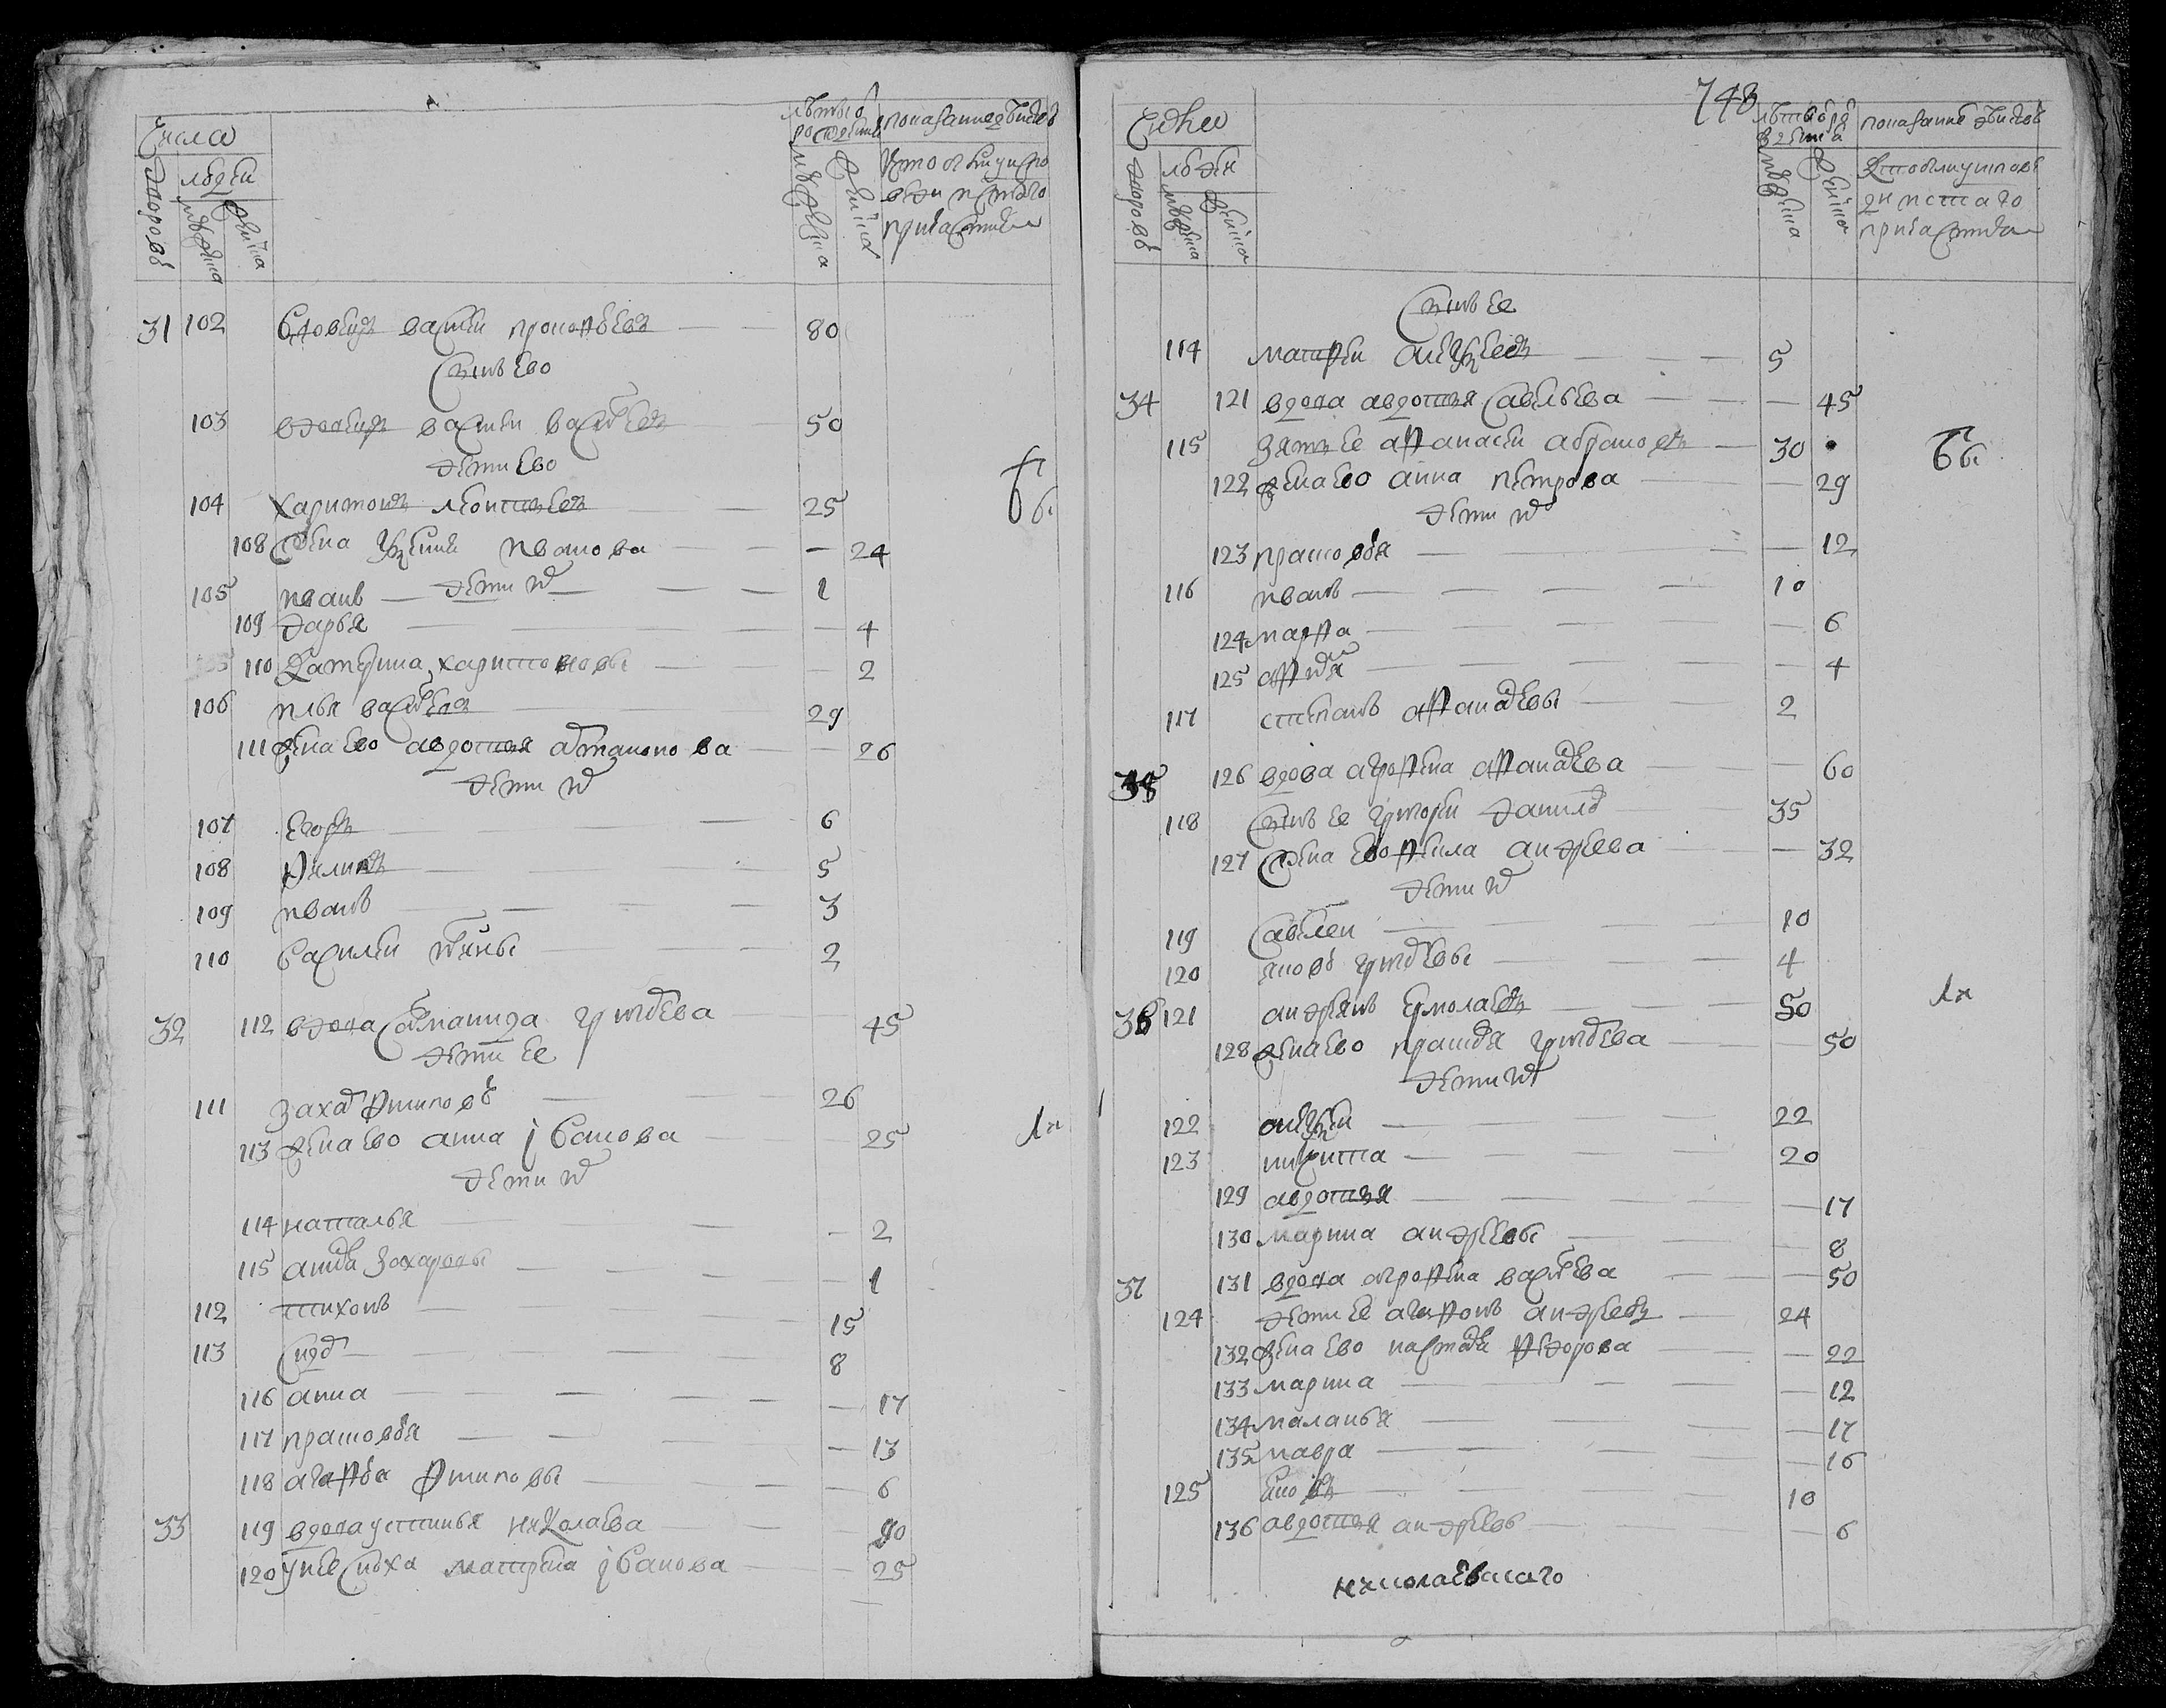 Число
людей
дворовъ
мужеска
женска
лѣта от рождения
мужеска
женска
показание дѣйства
кто былъ у исповѣди и святаго причастия
31 102 вдовецъ василей прокофьевъ 80
сынъ ево
103 вдовецъ василей васильевъ 50
дети ево
104 харитонъ леонтьевъ 25
108 жена ивановa 24
дети их
105 иванъ 1
109 дарья 4
110 катерина харитоновы 2
106 илья васильевъ 29
111 жена ево авдотья антипова 26
дети их
107 егоръ 6
108 филипъ 5
109 иванъ 3
110 василей ильины 2
32 112 вдова соломанида григорьева 45
дети ее
111 захаръ филиповъ 26
113 жена ево анна iванова 25
дети их
114 наталья 2
115 анисья захаровы 1
112 тихонъ 15
113 сидоръ 8
116 анна 17
117 прасковья 13
118 агафья филиповы 6
33 119 вдова устинья николаева 90
120 у нее сноха матрена iванова 25
748
Число
людей
дворовъ
мужеска
женска
лѣта от рождения
мужеска
женска
показание дѣйства
кто былъ у исповѣди и святаго причастия
сынъ ее
114 матфей алексѣевъ 5
34 121 вдова авдотья савельева 45
115 зять ее афанасей абрамовъ 30
122 жена ево анна петрова 29
дети их
123 прасковья 12
116 иванъ 10
124 марфа 6
125 афимья 4
117 степанъ афанасьевы 2
35 126 вдова агрофена афанасьева 60
118 сынъ ее григорей даниловъ 35
127 жена ево андреева 32
дети их
119 савелей 10
120 яковъ григорьевы 4
36 121 андреянъ ермолаевъ 50
128 жена ево прасковья григорьева 50
дети их
122 алексѣй 22
123 никита 20
129 авдотья 17
130 марина андреевы 8
37 131 вдова агрофена васильева 50
124 дети ее агафонъ андреевъ 24
132 жена ево настасья федорова 22
133 марина 12
134 маланья 17
135 мавра 16
125 10
136 авдотья андреевы 6
николаевскаго